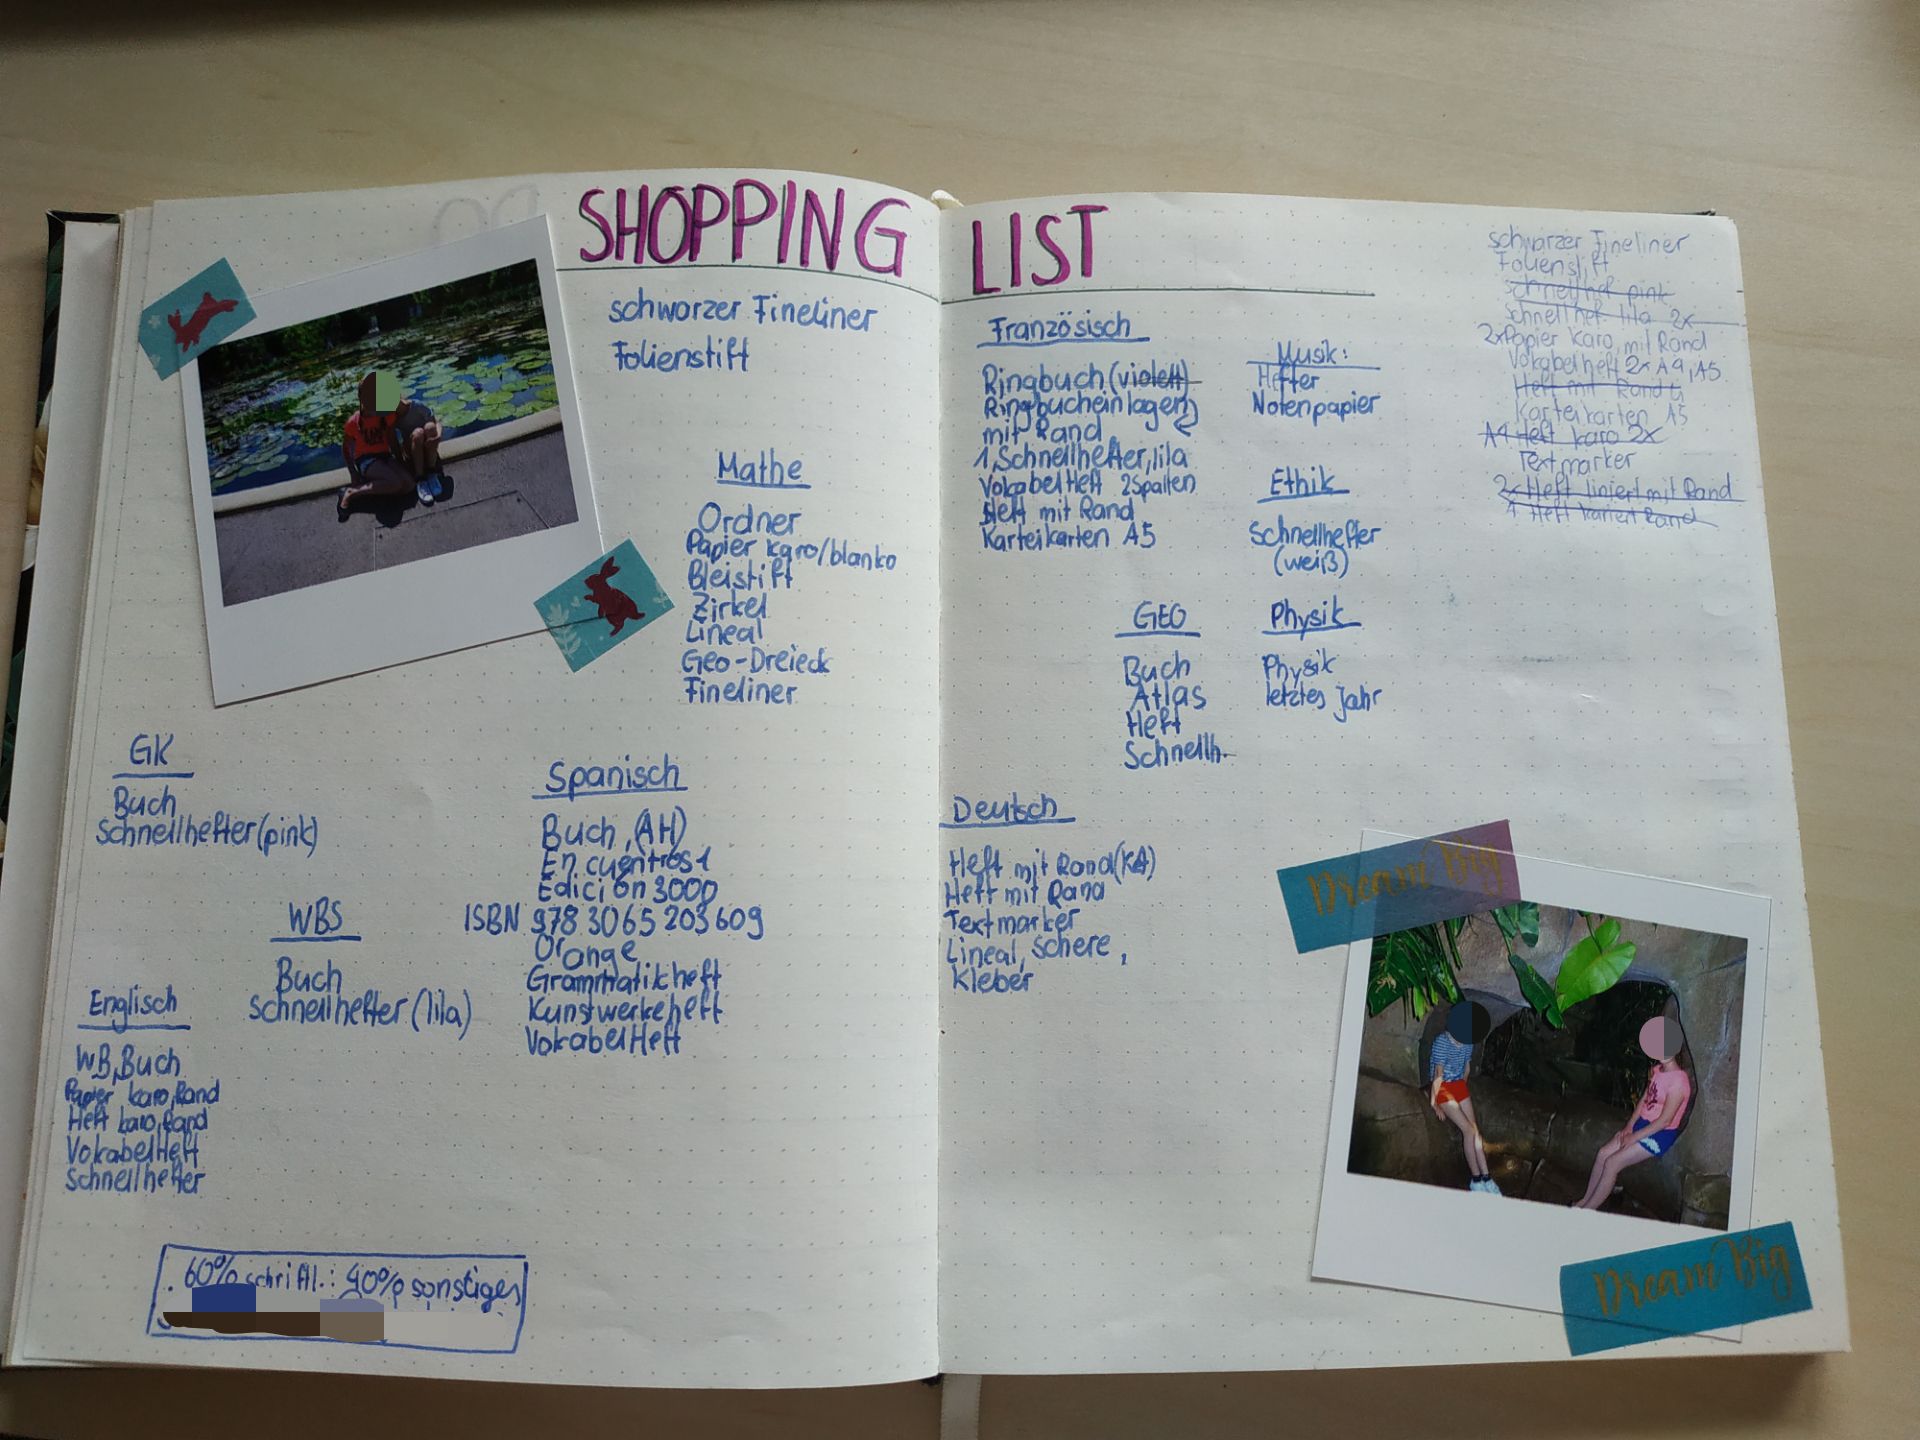 SHOPPING LIST
schworzer Fineliner
Folienstift
Mathe
Ordner
Papier karo/blanko
Bleistift
Zirkel
Lineal
Geo-Dreieck
Fineliner
GK
Buch
Schnellhefter (pink)
Spanisch
Buch, (AH)
Encuentros 1
Edición 3000
ISBN 978 3065 203609
Orange
Grammatikheft
Kunstwerkeheft
VokabelHeft
WBS
Buch
Schnellhefter (lila)
Englisch
WB, Buch
Papier karo, Rand
Heft karo, Rand
VokabelHeft
Schnellhefter
60% schriftl.: 40% sonstiges
Französisch
Ringbuch (violett)
Ringbucheinlagen
mit Rand
1, Schnellhefter, lila
VokabelHeft 2Spalten
Heft mit Rand
Karteikarten A5
Musik:
Hefter
Notenpapier
Ethik
Schnellhefter
(weiß)
GEO
Buch
Atlas
Heft
Schnellh.
Physik
Physik
letztes Jahr
Deutsch
Heft mit Rand (KA)
Heft mit Rand
Textmarker
Lineal, Schere,
Kleber
schwarzer Fineliner
Folienstift
Schnellhef. pink
Schnellhef. lila 2x
2x Papier karo, mit Rand
Vokabelheft 2x A4, A5
Heft mit Rand
Karteikarten A5
A4 Heft karo 2x
Textmarker
2x Heft liniert mit Rand
1 Heft kariert Rand
Dream Big
Dream Big